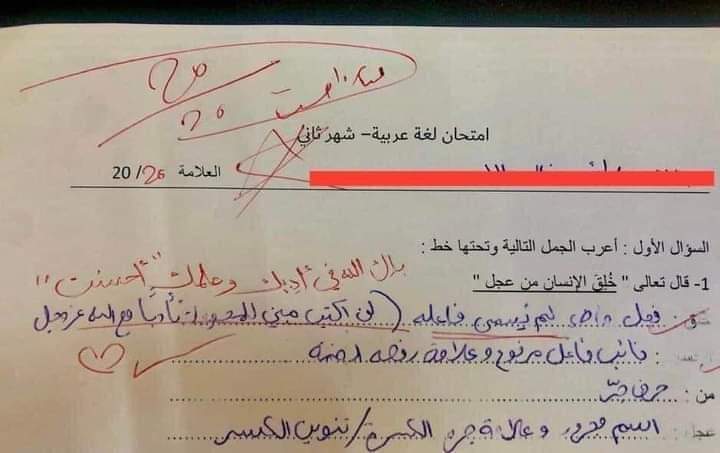 ممتاز احسنت
20
20
امتحان لغة عربية – شهر ثاني
العلامة 20 /20
السؤال الأول : أعرب الجمل التالية وتحتها خط :
بارك الله في أدبك وعلمك "أحسنت"
1- قال تعالى " خُلِقَ الإنسان من عجل "
خلق: فعل ماضٍ لم يسمى فاعله (لن اكتب مبني للمجهول تأدباً مع الله عز وجل
: نائب فاعل مرفوع وعلامة رفعه الضمة
من: حرف جرّ
عجل: اسم مجرور وعلامة جره الكسرة/تنوين الكسر